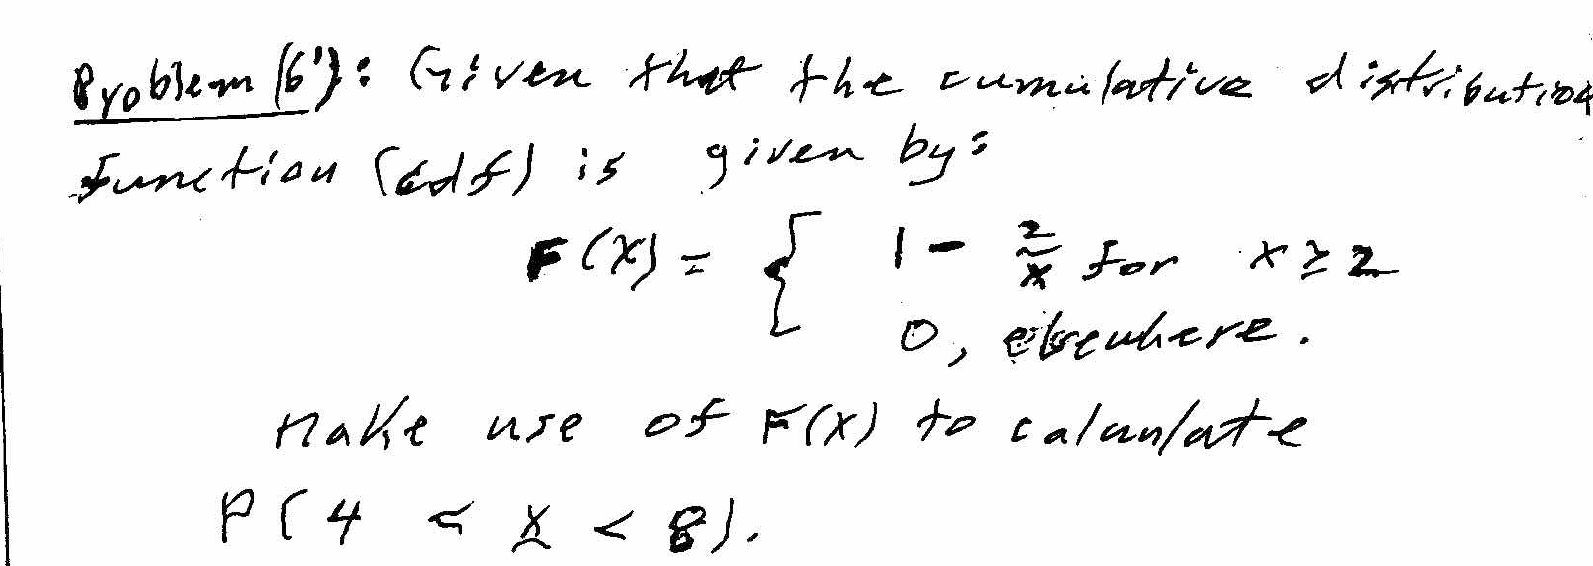 Problem (6'): Given that the cumulative distribution
function (cdf) is given by:
F(x) = { 1 - 2/x for x ≥ 2
0, elsewhere.
Make use of F(x) to calculate
P(4 < X < 8).